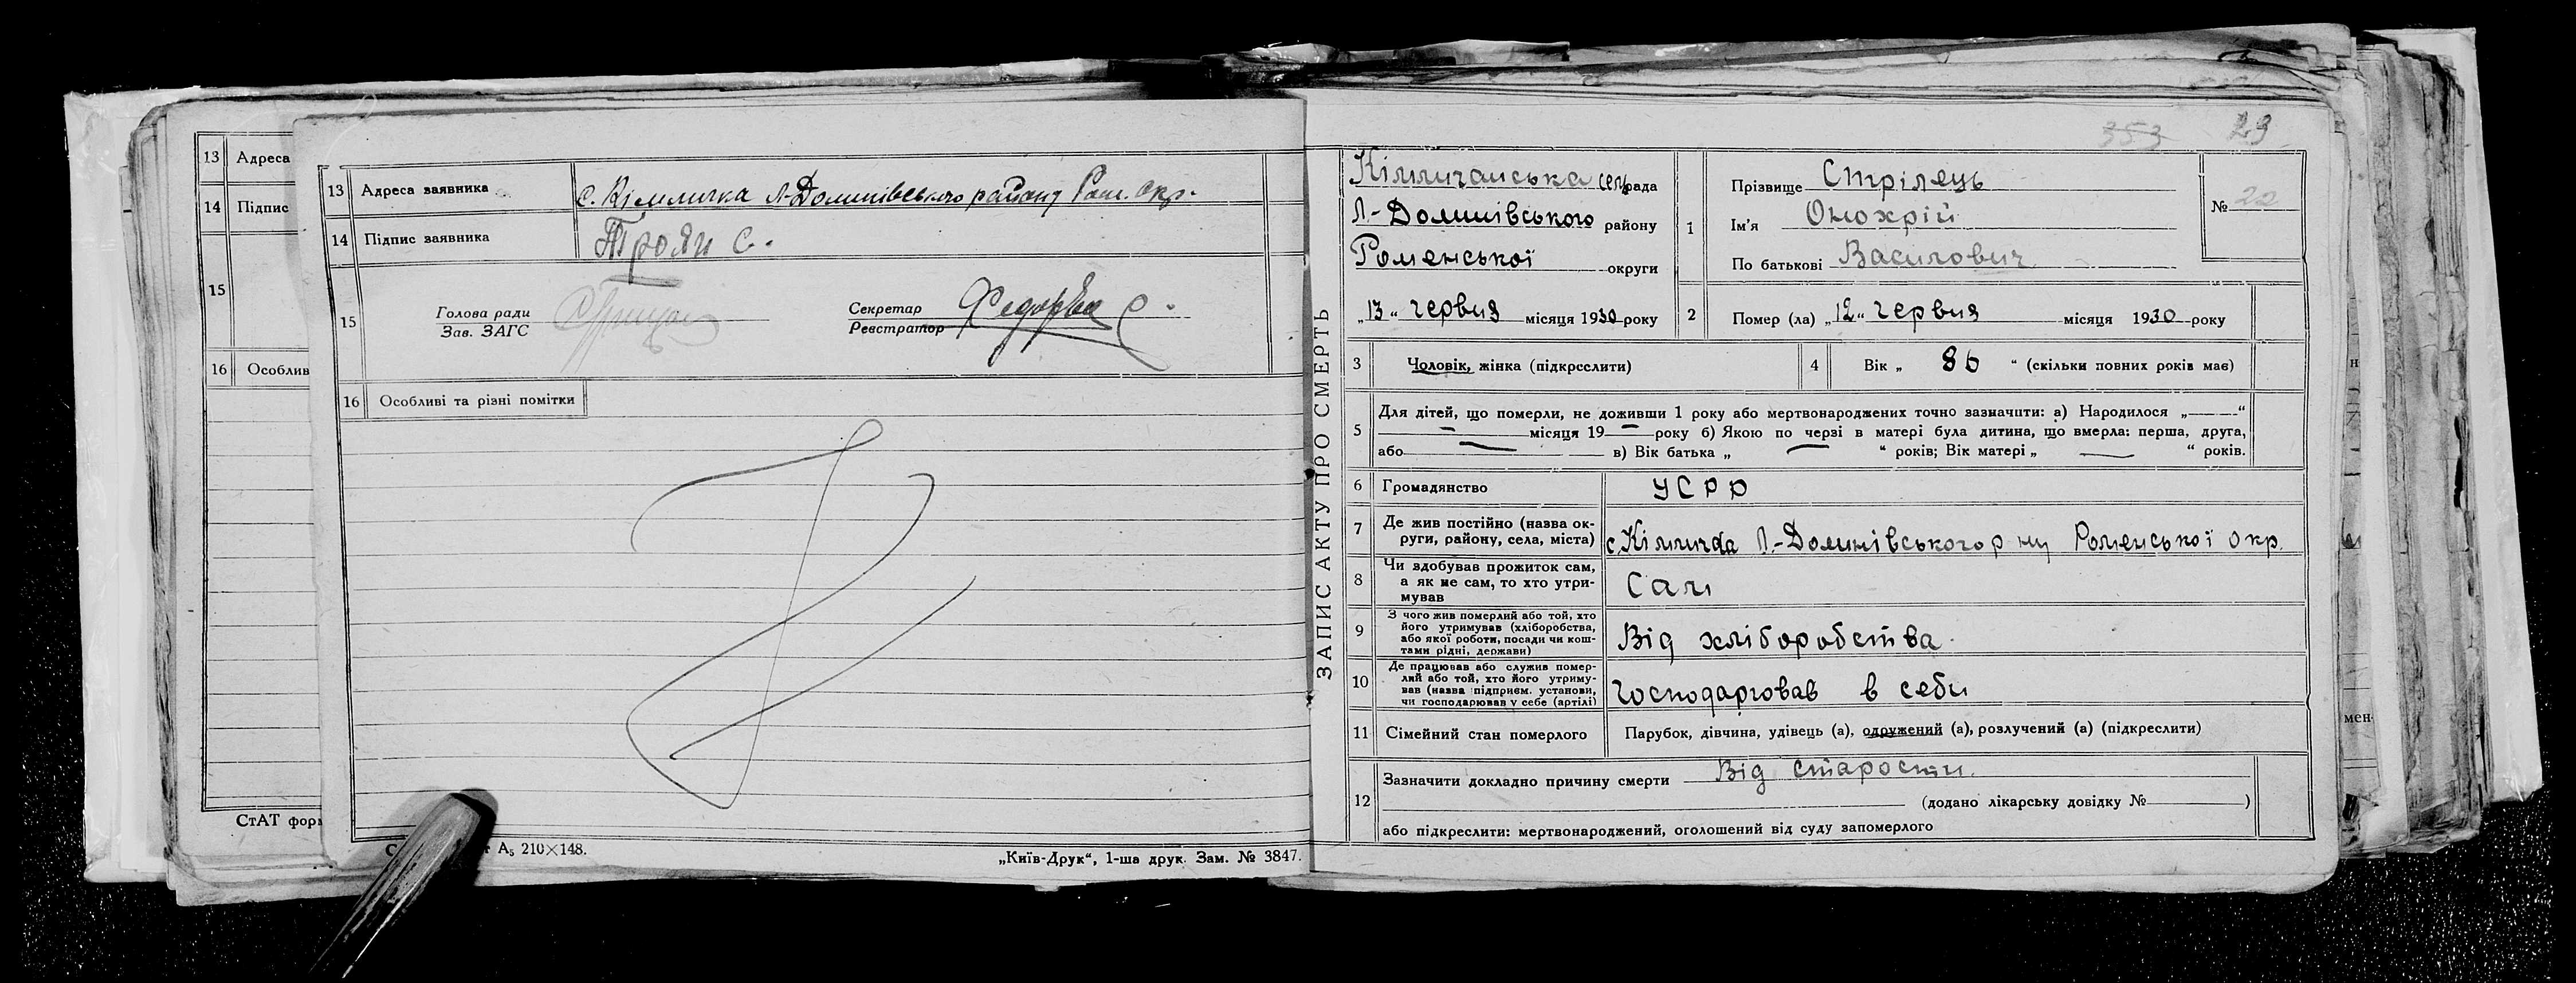 13 Адреса
14 Підпис
15
16 Особлив
СтАТ форм
13 Адреса заявника с. Кімличка Л-Долинівського району Ром. окр.
14 Підпис заявника Троян С.
15 Голова ради
Зав. ЗАГС
Секретар
Реєстратор
16 Особливі та різні помітки
А5 210×148.
„Київ-Друк“, 1-ша друк. Зам. № 3847.
ЗАПИС АКТУ ПРО СМЕРТЬ
353 29
Кімличанська сельрада
Л.-Долинівського району
Роменської округи
„13“ червня місяця 1930 року
1 Прізвище Стрілець
Ім'я Онохрій
По батькові Василович
№ 22
2 Помер (ла) „12“ червня місяця 1930 року
3 Чоловік, жінка (підкреслити)
4 Вік „ 86 “ (скільки повних років має)
5 Для дітей, що померли, не доживши 1 року або мертвонароджених точно зазначити: а) Народилося „—“
— місяця 19— року б) Якою по черзі в матері була дитина, що вмерла: перша, друга,
або — в) Вік батька „ — “ років; Вік матері „ — “ років.
6 Громадянство УСРР
7 Де жив постійно (назва ок-
руги, району, села, міста) с. Кімличка Л.-Долинівського р-ну Роменської окр.
8 Чи здобував прожиток сам,
а як не сам, то хто утри-
мував Сам
9 З чого жив померлий або той, хто
його утримував (хліборобства,
або якої роботи, посади чи кош-
тами рідні, держави) Від хліборобства
10 Де працював або служив помер-
лий або той, хто його утриму-
вав (назва підприєм. установи,
чи господарював у себе (артілі) господарював в себи
11 Сімейний стан померлого Парубок, дівчина, удівець (а), одружений (а), розлучений (а) (підкреслити)
12 Зазначити докладно причину смерти Від старости.
(додано лікарську довідку № )
або підкреслити: мертвонароджений, оголошений від суду запомерлого
мен-